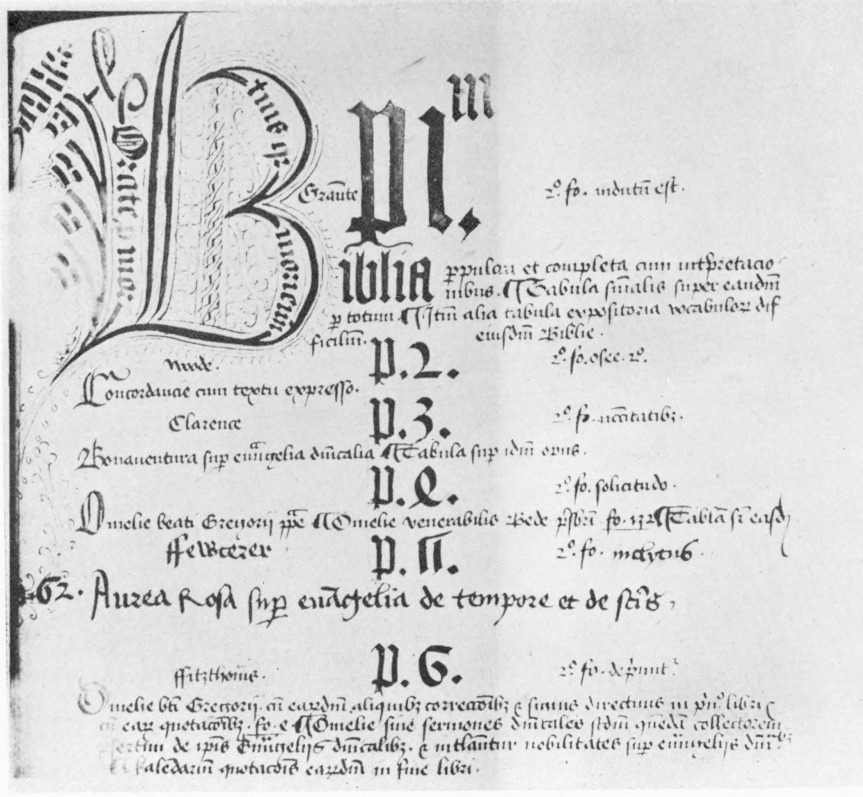 Orate p mor
tuis
Grante P 1m. 2o. fo. indutū est.
Biblia p̱pulcra et completa cum int̄pretacio
nibus. ¶ Tabula sīnalis super eandm̄
p̱ totum ¶ Itm̄ alia tabula expositoria vocabuloꝝ dif
ficiliū. eiusdm̄ Biblie.
Woode. P.2. 2o. fo. osee. 2o.
Concordancie cum textu expresso.
Clarence P.3. 2o. fo.
Bonaventura sup euāgelia dn̄icalia ¶ Tabula sup idm̄ opus.
P.4. 2o. fo. solicitudo.
Omelie beati Gregorii pp̄e ¶ Omelie venerabilis Bede p̄sbri fo. 132 ¶ Tabla sr̄ easd
ffewterer P.5. 2o. fo. inclytus.
62. Aurea Rosa sup euāgelia de tempore et de sc̄is,
ffitzthom̄s. P.6. 2o. fo. dep̄unt
Omelie bt̄i Gregorii. cū eaꝝdm̄ aliquibꝫ correccōibꝫ & directiuis in libri
cū eaꝝ quotacōibꝫ. fo. ¶ Omelie siue sermones dn̄icales sc̄dm̄ quēdā collectorem
de ip̄is Euāgeliis dn̄icalibꝫ. & intlantur nobilitates sup euāgeliis dn̄icalibꝫ
¶ Kalēdariū quotacōis eaꝝdm̄ in fine libri.